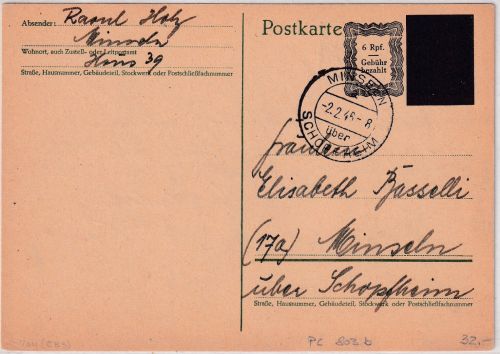 Absender: Raoul Holz
Minseln
Wohnort, auch Zustell- oder Leitpostamt
Haus 39
Straße, Hausnummer, Gebäudeteil, Stockwerk oder Postschließfachnummer
Postkarte
6 Rpf.
Gebühr
bezahlt
MINSELN
-2.2.46-8
über
SCHOPFHEIM
Fräulein
Elisabeth Rasselli
(17a) Minseln
über Schopfheim
Straße, Hausnummer, Gebäudeteil, Stockwerk oder Postschließfachnummer
PC 802 b
32.-